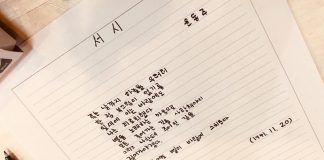 서시
윤동주
죽는 날까지 하늘을 우러러
한 점 부끄럼이 없기를
잎새에 이는 바람에도
나는 괴로워했다
별을 노래하는 마음으로
모든 죽어가는 것을 사랑해야지
그리고 나한테 주어진 길을
걸어가야겠다.
별이 바람에 스치운다
(1941.11.20)